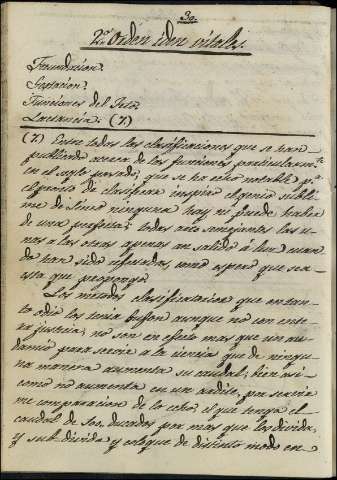 30.
2.º Orden iden vitales.
Fecundacion.
Gestacion.
Funciones del Feto.
Lactancia. (7)
(7) Entre todas las clasificaciones que se han
publicado acerca de las funciones particularm.te
en el siglo pasado, que se ha echo notable p.r
el prurito de clasificar inspira el genio subli-
me de Lineo ninguna hay ni puede haber
de una perfecta; todas mas semejantes las u-
nas a las otras apenas an salido á luz cuan
do han sido refutadas, como espero que sea
esta que propongo
Los metodos clasificatacion que en tan-
to odio los tenia Buffon aunque no con ente-
ra justicia; no son en efecto mas que un an-
damio para servir a la ciencia que de ningu-
na manera aumenta su caudal; bien asi
como no aumenta en un ardite, por servir
me comparacion de lo echo, el que tenga el
caudal de 500, ducados por mas que los divida,
y sub-divida y coloque de distinto modo en